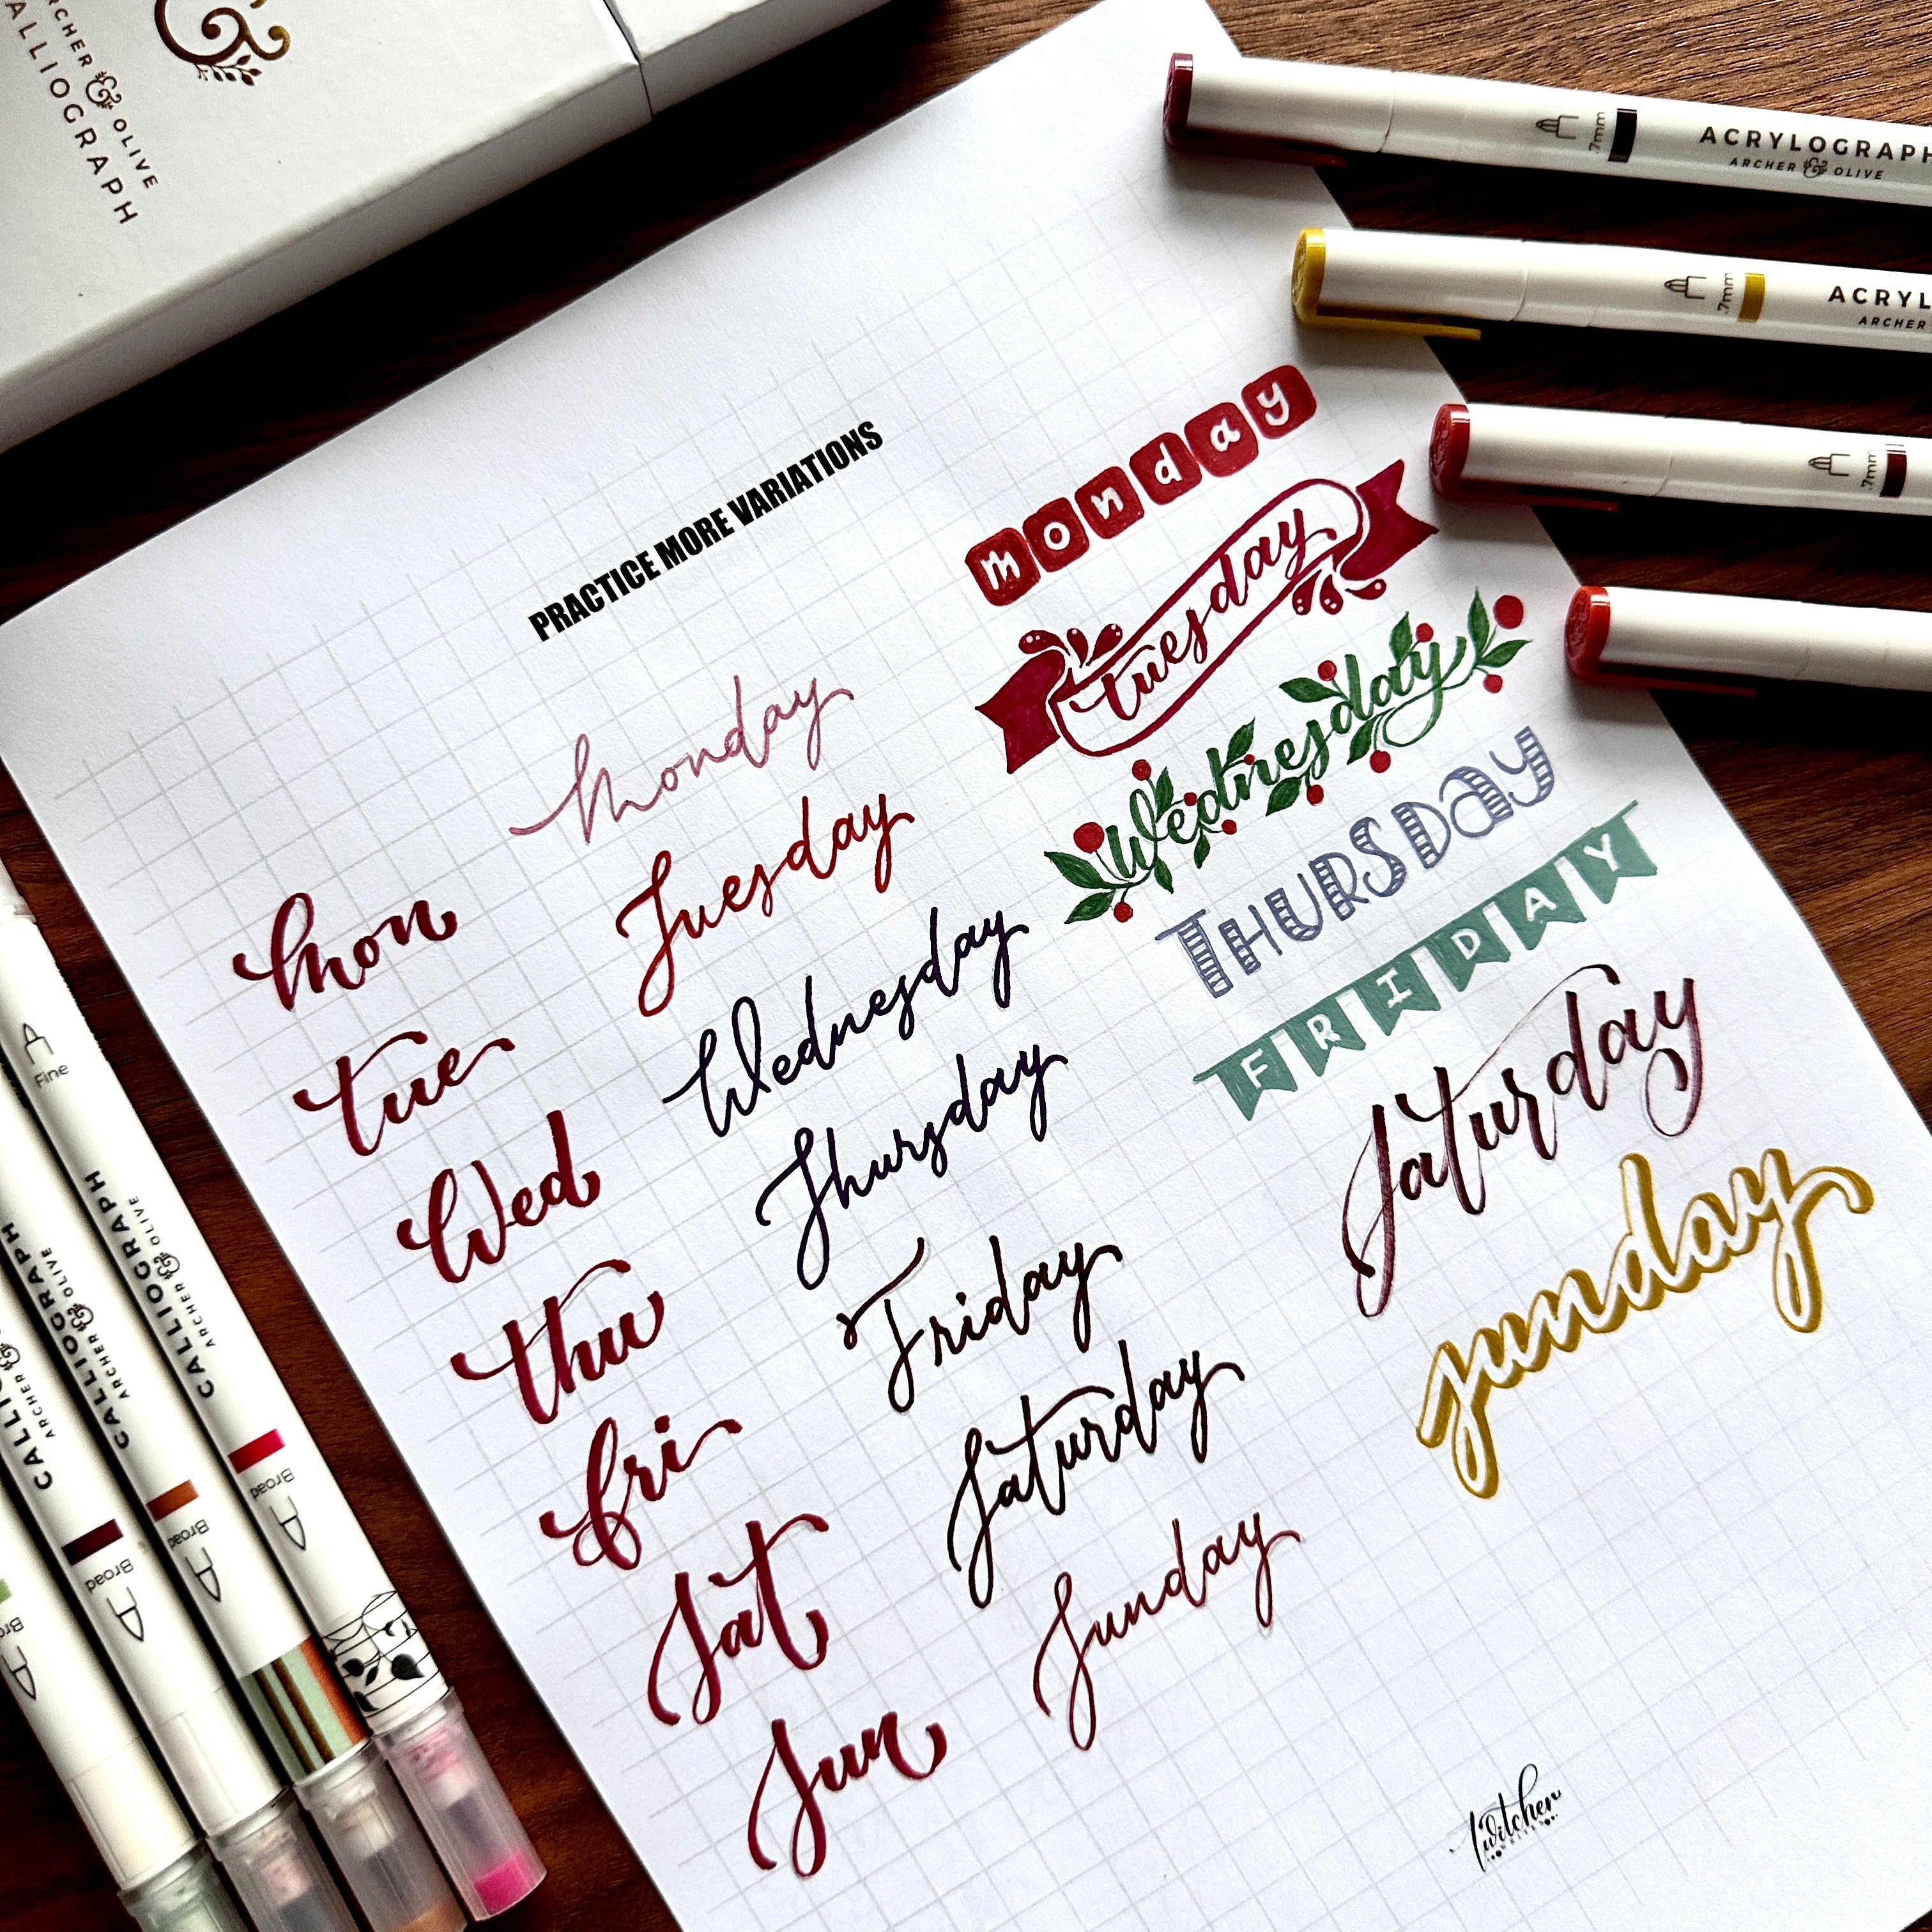 ARCHER & OLIVE
CALLIOGRAPH
&
.7mm ACRYLOGRAPH
ARCHER & OLIVE
.7mm ACRYL
ARCHER
.7mm
PRACTICE MORE VARIATIONS
mon
tue
Wed
thu
fri
sat
sun
monday
Tuesday
Wednesday
Thursday
Friday
Saturday
Sunday
monday
tuesday
Wednesday
THURSDAY
FRIDAY
Saturday
sunday
Fine
CALLIOGRAPH
ARCHER & OLIVE
Broad
CALLIOGRAPH
ARCHER & OLIVE
Broad
CALLIOGRAPH
ARCHER & OLIVE
Broad
Twitcher
WRITES